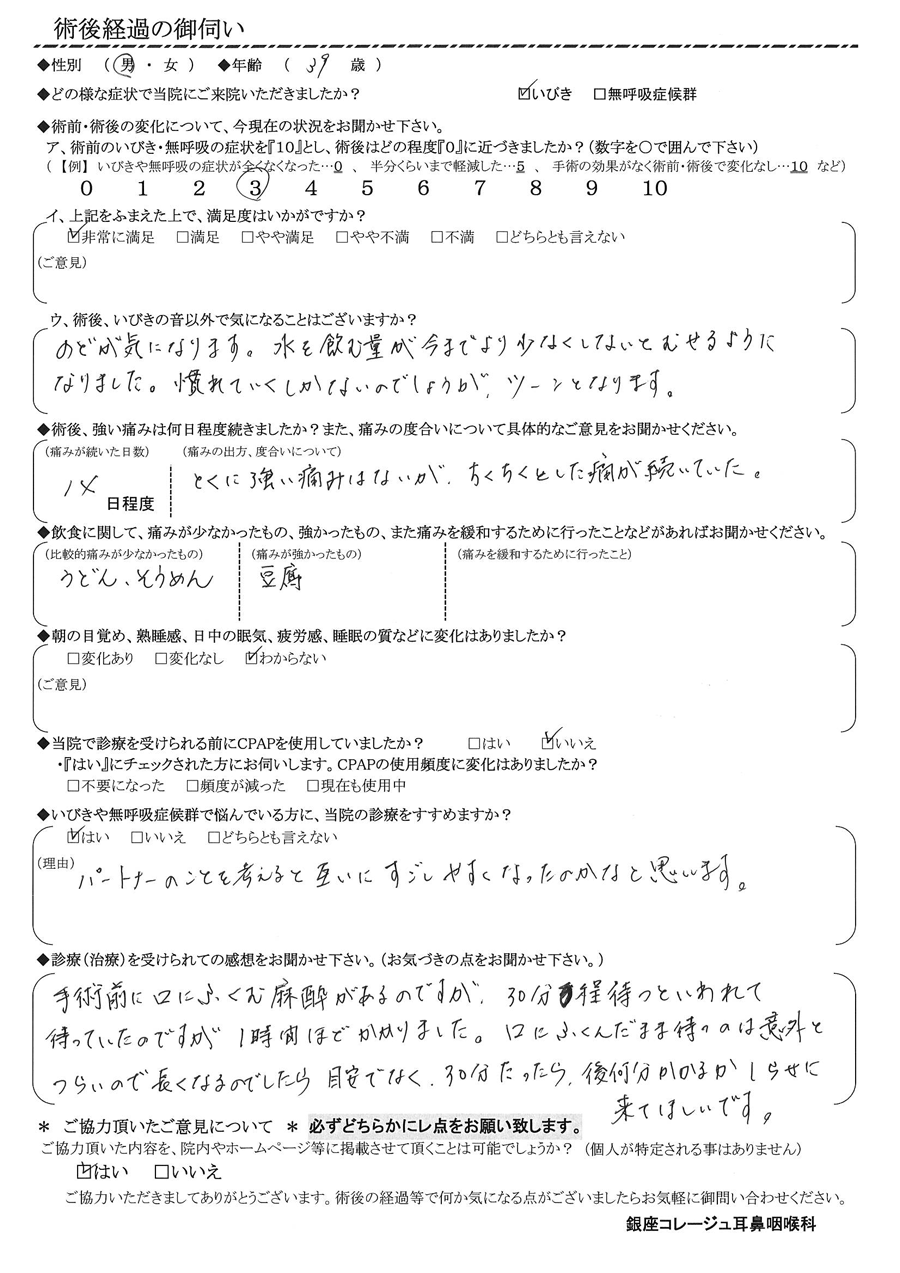 術後経過の御伺い
◆性別 （ 男 ・ 女 ） ◆年齢 （ 39 歳 ）
◆どの様な症状で当院にご来院いただきましたか？ ☑いびき □無呼吸症候群
◆術前・術後の変化について、今現在の状況をお聞かせ下さい。
ア、術前のいびき・無呼吸の症状を『10』とし、術後はどの程度『0』に近づきましたか？（数字を○で囲んで下さい）
（【例】 いびきや無呼吸の症状が全くなくなった…0 、 半分くらいまで軽減した…5 、 手術の効果がなく術前・術後で変化なし…10 など）
0 1 2 3 4 5 6 7 8 9 10
イ、上記をふまえた上で、満足度はいかがですか？
☑非常に満足 □満足 □やや満足 □やや不満 □不満 □どちらとも言えない
（ご意見）
ウ、術後、いびきの音以外で気になることはございますか？
のどが気になります。水を飲む量が今までより少なくしないとむせるように
なりました。慣れていくしかないのでしょうが、ツーンとなります。
◆術後、強い痛みは何日程度続きましたか？また、痛みの度合いについて具体的なご意見をお聞かせください。
（痛みが続いた日数） （痛みの出方、度合いについて）
14 日程度 とくに強い痛みはないが、ちくちくとした痛が続いていた。
◆飲食に関して、痛みが少なかったもの、強かったもの、また痛みを緩和するために行ったことなどがあればお聞かせください。
（比較的痛みが少なかったもの） （痛みが強かったもの） （痛みを緩和するために行ったこと）
うどん、そうめん 豆腐
◆朝の目覚め、熟睡感、日中の眠気、疲労感、睡眠の質などに変化はありましたか？
□変化あり □変化なし ☑わからない
（ご意見）
◆当院で診療を受けられる前にCPAPを使用していましたか？ □はい ☑いいえ
・『はい』にチェックされた方にお伺いします。CPAPの使用頻度に変化はありましたか？
□不要になった □頻度が減った □現在も使用中
◆いびきや無呼吸症候群で悩んでいる方に、当院の診療をすすめますか？
☑はい □いいえ □どちらとも言えない
（理由） パートナーのことを考えると互いにすごしやすくなったのかなと思います。
◆診療（治療）を受けられての感想をお聞かせ下さい。（お気づきの点をお聞かせ下さい。）
手術前に口にふくむ麻酔があるのですが、30分程待つといわれて
待っていたのですが1時間ほどかかりました。口にふくんだまま待つのは意外と
つらいので長くなるのでしたら目安でなく、30分たったら、後何分かかるかしらせに
来てほしいです。
＊ ご協力頂いたご意見について ＊ 必ずどちらかにレ点をお願い致します。
ご協力頂いた内容を、院内やホームページ等に掲載させて頂くことは可能でしょうか？ （個人が特定される事はありません）
☑はい □いいえ
ご協力いただきましてありがとうございます。術後の経過等で何か気になる点がございましたらお気軽に御問い合わせください。
銀座コレージュ耳鼻咽喉科